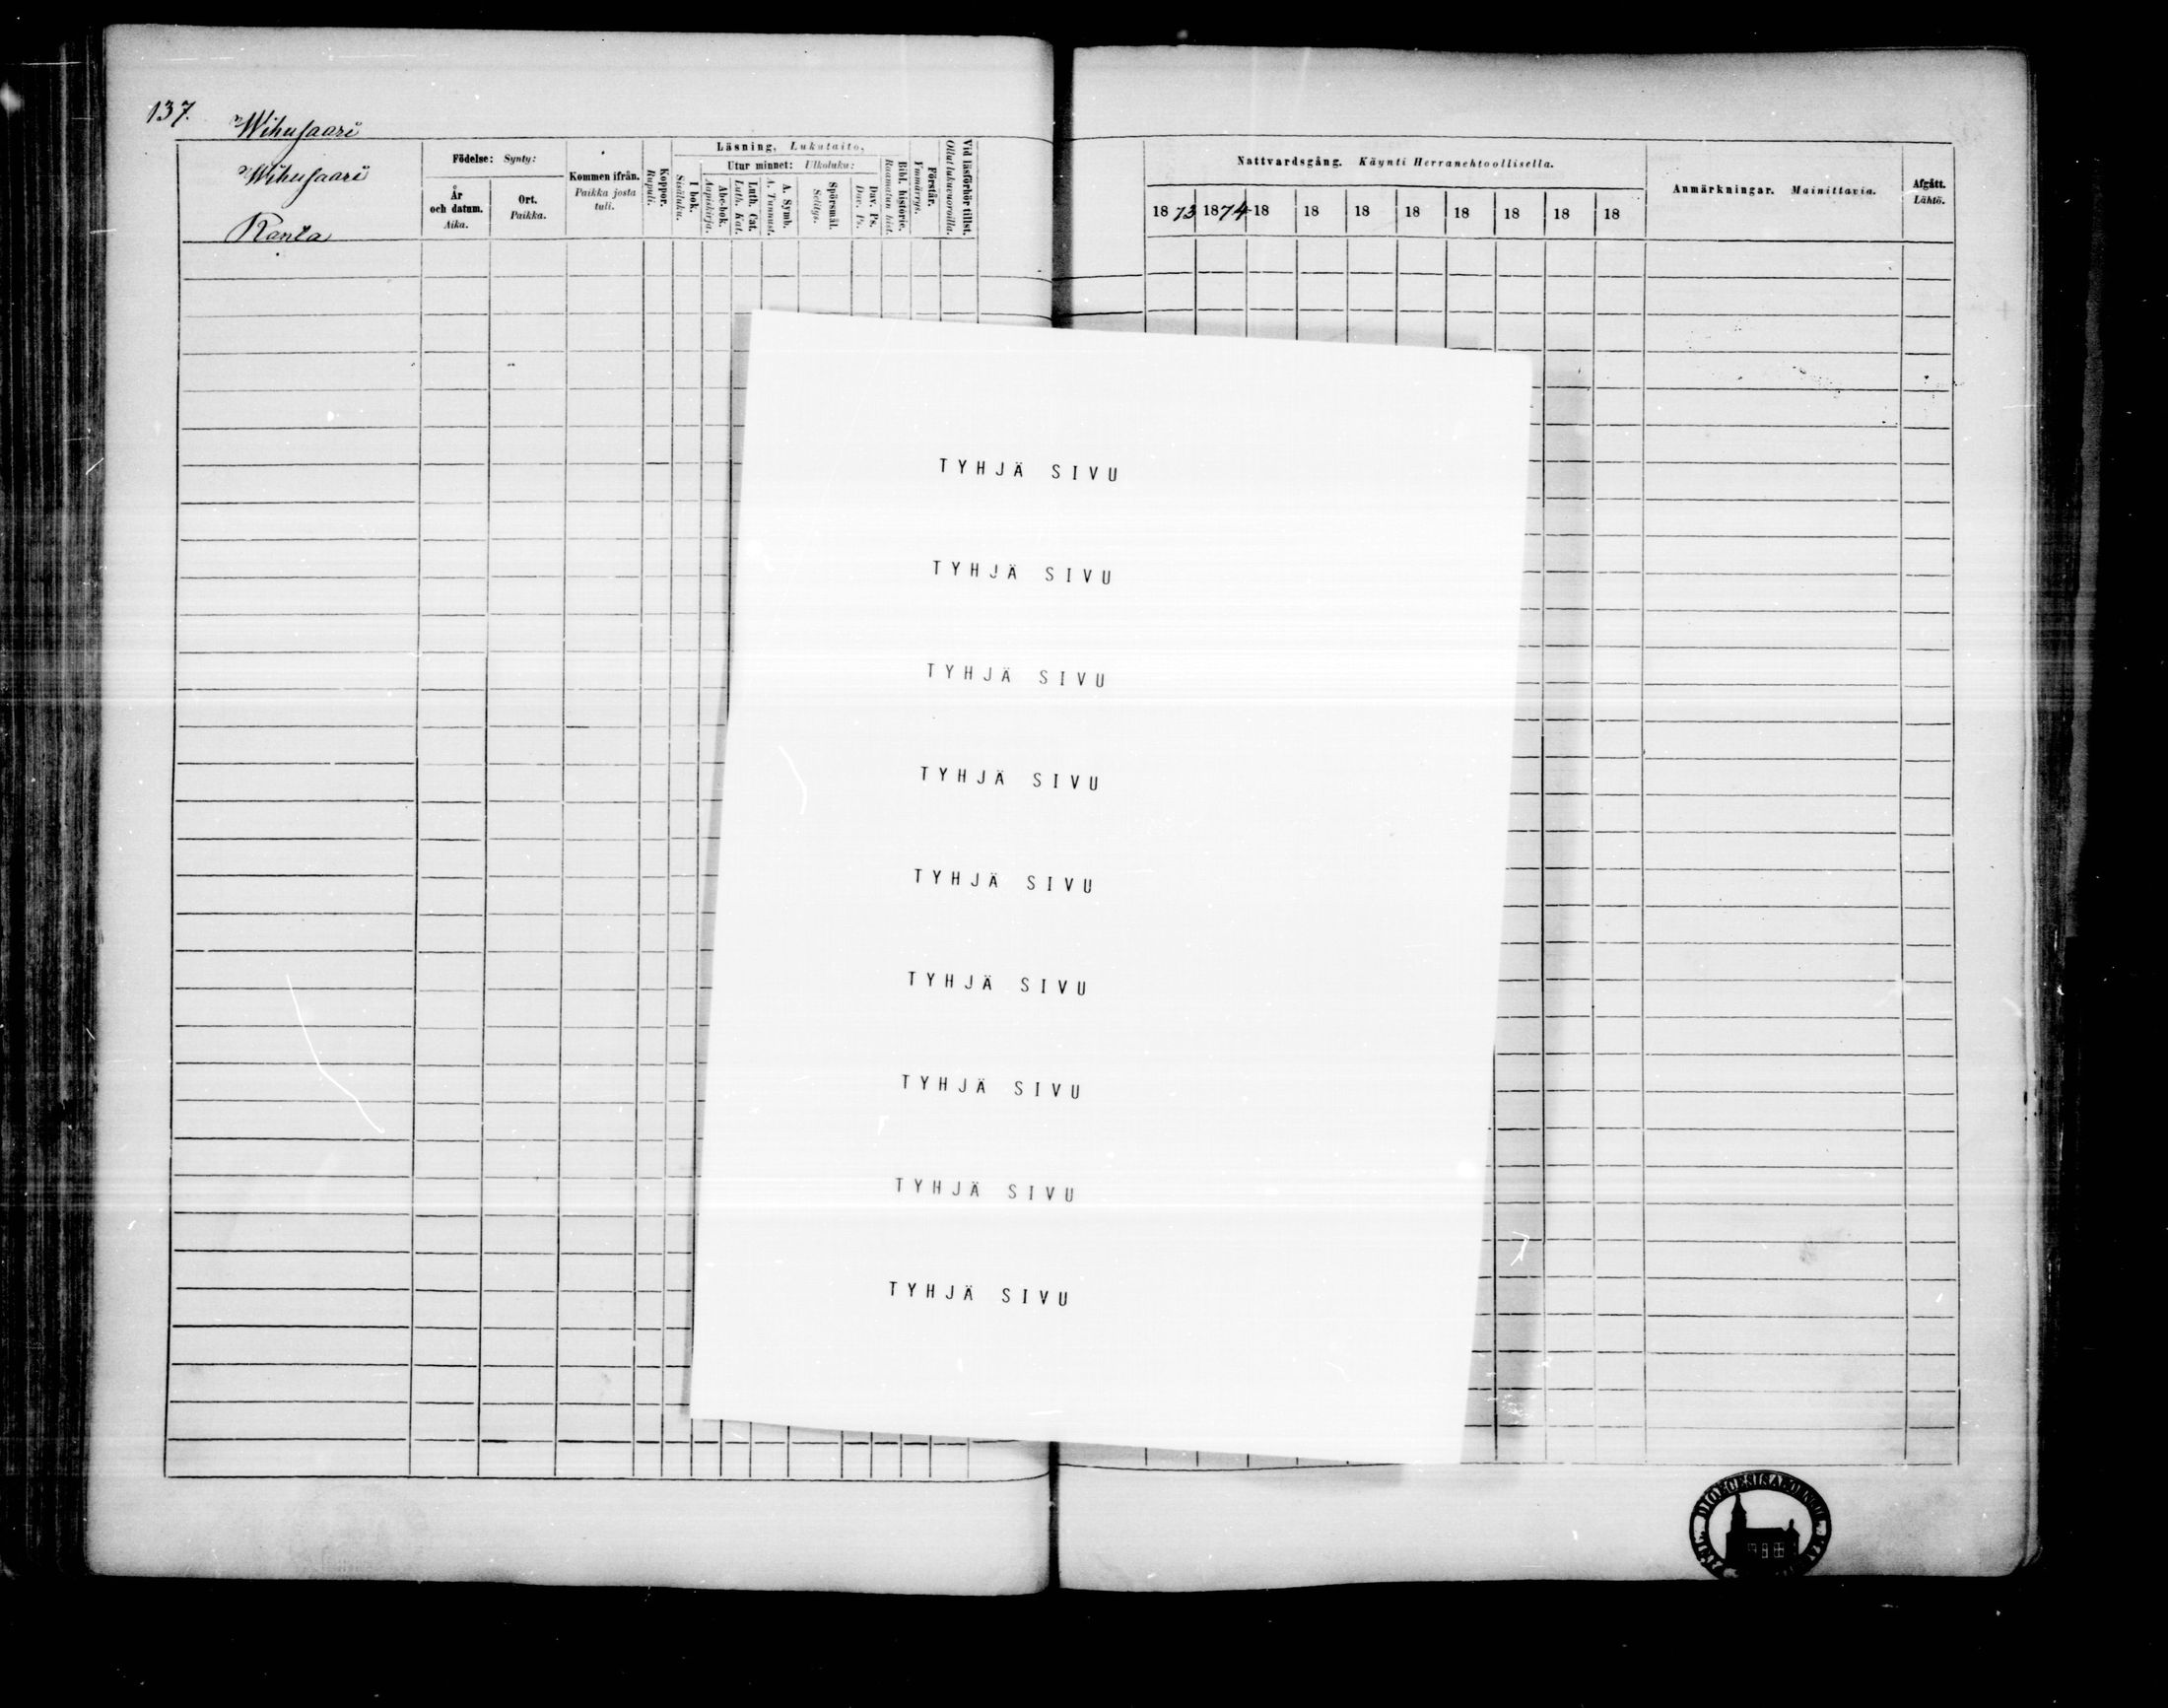 137.
Wihusaari
Wihusaari
Ranta
Födelse: Synty:
År och datum. Aika.
Ort. Paikka.
Kommen ifrån. Paikka josta tuli.
Koppor. Rupuli.
Läsning, Lukutaito,
I bok. Sisäluku.
Utur minnet: Ulkoluku:
Abc-bok. Aapiskirja.
Luth. Cat. Luth. Kat.
A. Symb. A. Tunnust.
Spörsmål. Selitys.
Dav. Ps. Dav. Ps.
Bibl. historie. Raamatun hist.
Förstår. Ymmärrys.
Vid läsförhör tillst. Ollut lukuvuoroilla.
Nattvardsgång. Käynti Herranehtoollisella.
1873 1874 18 18 18 18 18 18 18 18
Anmärkningar. Mainittavia.
Afgått. Lähtö.
TYHJÄ SIVU
TYHJÄ SIVU
TYHJÄ SIVU
TYHJÄ SIVU
TYHJÄ SIVU
TYHJÄ SIVU
TYHJÄ SIVU
TYHJÄ SIVU
TYHJÄ SIVU